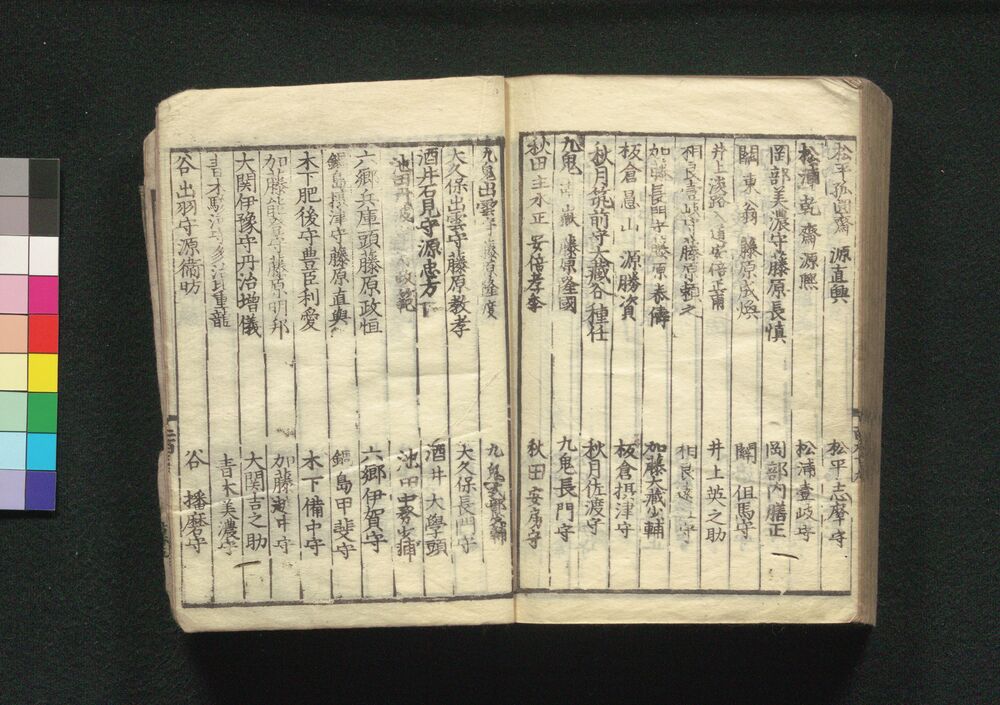 松平孤山齋 源直興 松平志摩守
松浦乾齋源凞 松浦壹岐守
岡部美濃守藤原長慎 岡部内膳正
關東翁 藤原成煥 關 但馬守
井上淡路入道安倍正甫 井上英之助
相良壹岐守藤原頼之 相良遠 守
加藤長門守藤原泰儔 加藤大藏少輔
板倉昌山 源勝資 板倉摂津守
秋月筑前守大藏谷種任 秋月佐渡守
九鬼 嶽 藤原隆國 九鬼長門守
秋田主水正 安倍孝季 秋田安房守
九鬼出雲守藤原隆度 九鬼式部少輔
大久保出雲守藤原教孝 大久保長門守
酒井石見守源忠方 酒井 大學頭
池田丹波 政範 池田 少輔
六郷兵庫頭藤原政恒 六郷伊賀守
鍋島摂津守藤原直與 鍋島甲斐守
木下肥後守豊臣利愛 木下備中守
加藤能登守藤原明邦 加藤越中守
大関伊豫守丹治増儀 大関吉之助
青木駿河守 重龍 青木美濃守
谷出羽守源衛昉 谷 播磨守